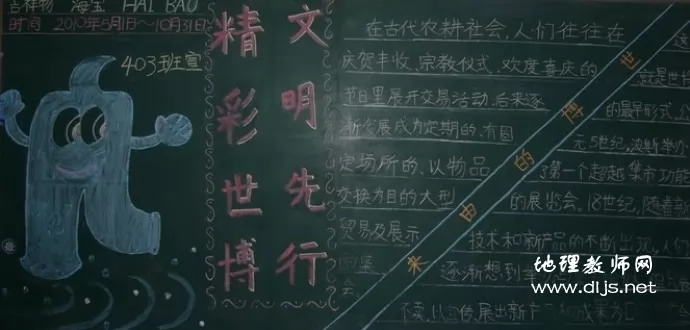 吉祥物 海宝 HAI BAO
时间 2010年5月1日～10月31日
403班宣
文明先行
精彩世博
世博的由来
在古代农耕社会,人们往往在
庆贺丰收、宗教仪式、欢度喜庆的
节日里展开交易活动.后来逐
渐发展成为定期的、有固
定场所的、以物品
交换为目的大型
贸易及展示
的集
会。
这
就是世
的最早形式.公
元5世纪,波斯举办
了第一个超越集市功能
的展览会。18世纪,随着新
技术和新产品的不断出现,人们
逐渐想到
展出新产
地理教师网
www.dljs.net